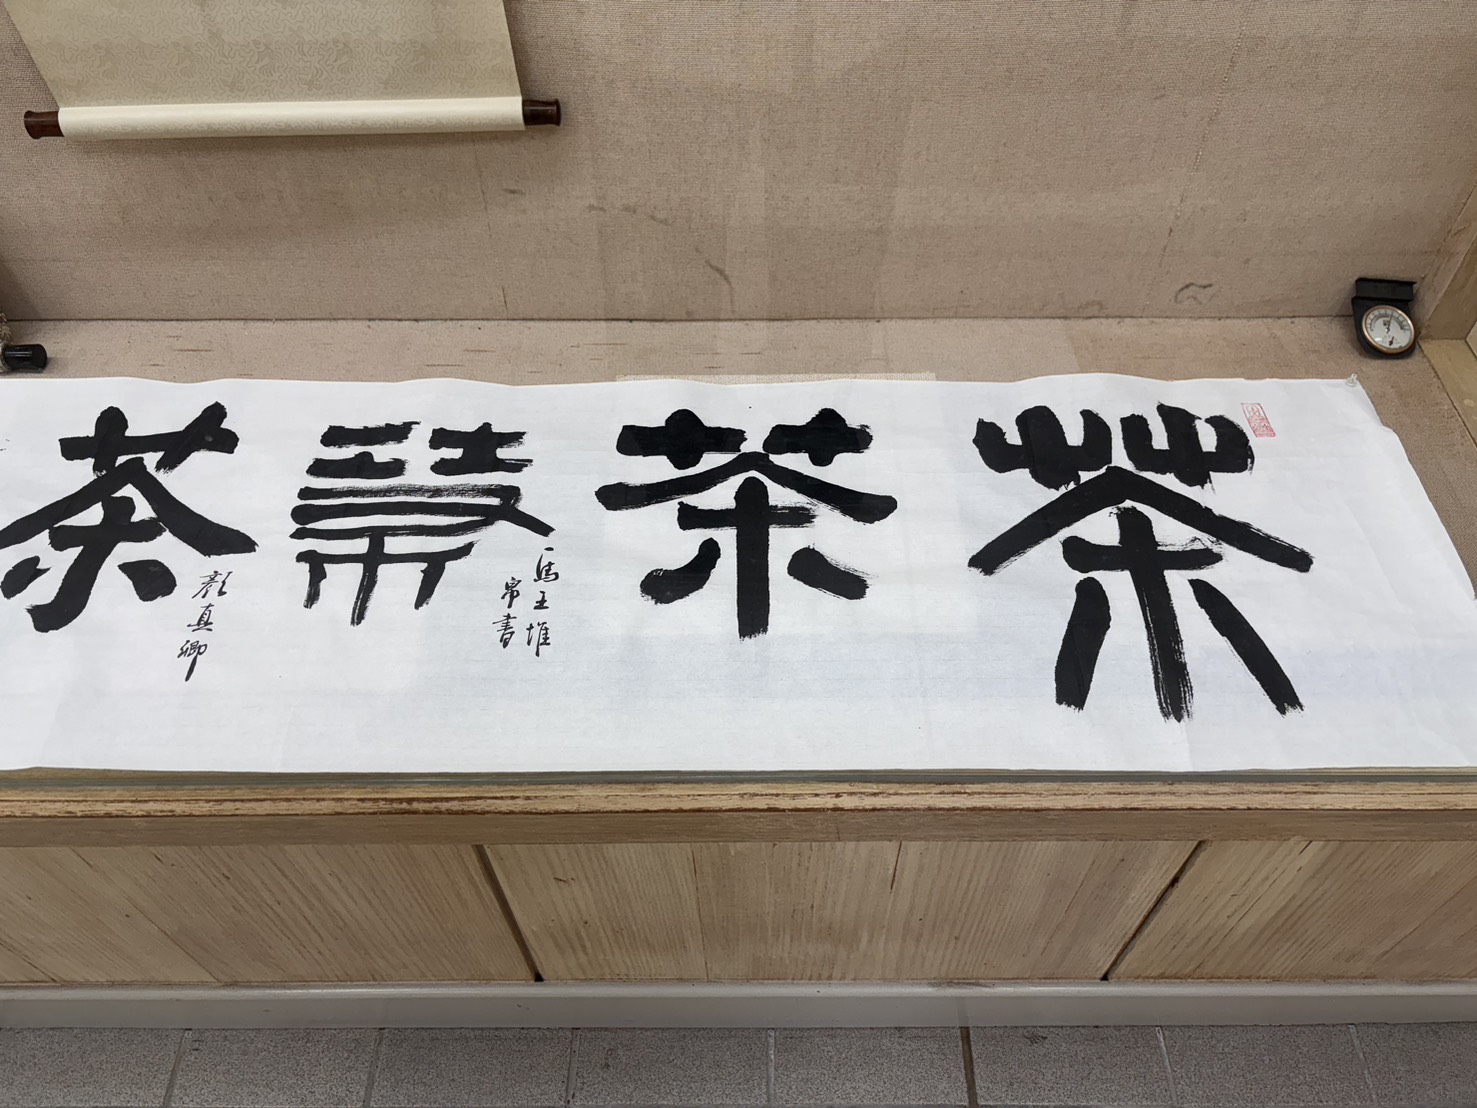 茶
茶
馬王堆
帛書
茶
顏真卿